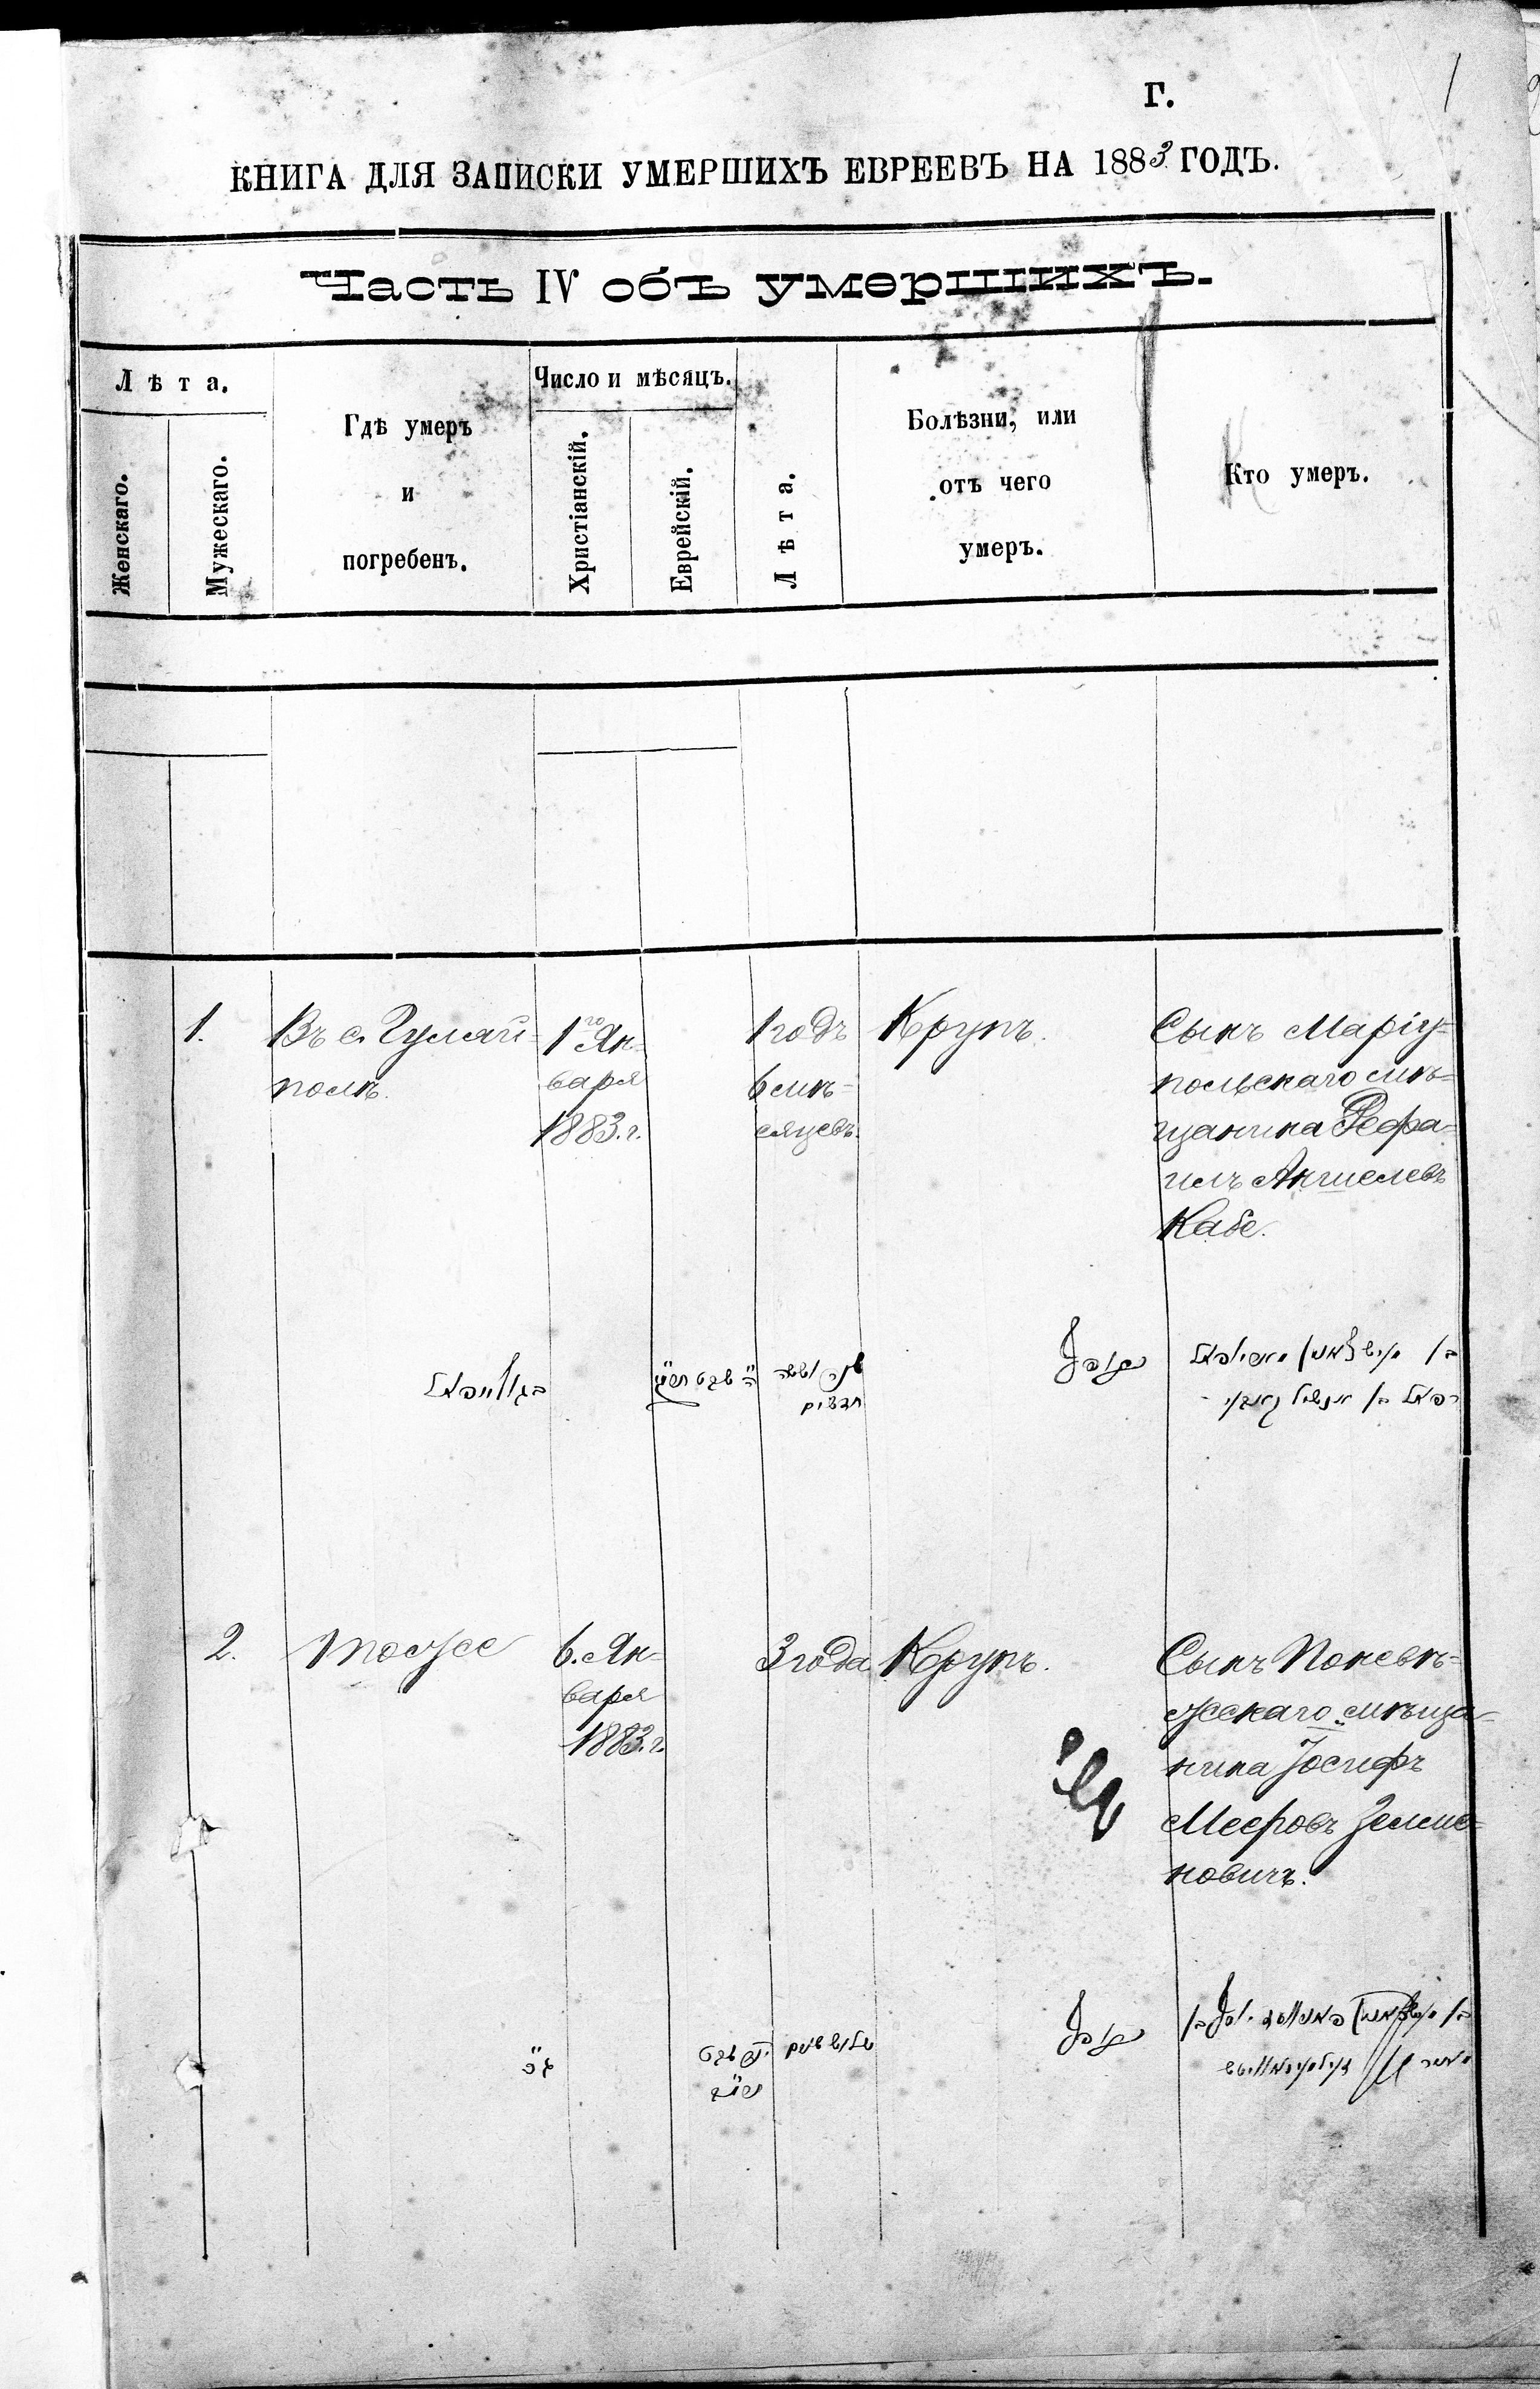 Г.
1
КНИГА ДЛЯ ЗАПИСКИ УМЕРШИХЪ ЕВРЕЕВЪ НА 1883 ГОДЪ.
Часть IV объ умершихъ.
Лѣта.
Женскаго.
Мужескаго.
Гдѣ умеръ
и
погребенъ.
Число и мѣсяцъ.
Христіанскій.
Еврейскій.
Лѣта.
Болѣзни, или
отъ чего
умеръ.
Кто умеръ.
1.
Въ с. Гуляй-
полѣ.
1го Ян-
варя
1883. г.
1 годъ
6 мѣ-
сяцевъ.
Крупъ.
Сынъ Маріу-
польскаго мѣ-
щанина Рефа-
илъ Аншелевъ
Кабе.
בגוליי פאל
ה' שבט
שנה וששה
חדשים
רפאל בן אנשיל
2.
тоже
6. Ян-
варя
1883. г.
3 года
Крупъ.
Сынъ Поневѣ-
жскаго мѣща-
нина Іосифъ
Мееровъ Зельмо-
новичъ.
ג"כ
שבט
שלוש שנים
בן